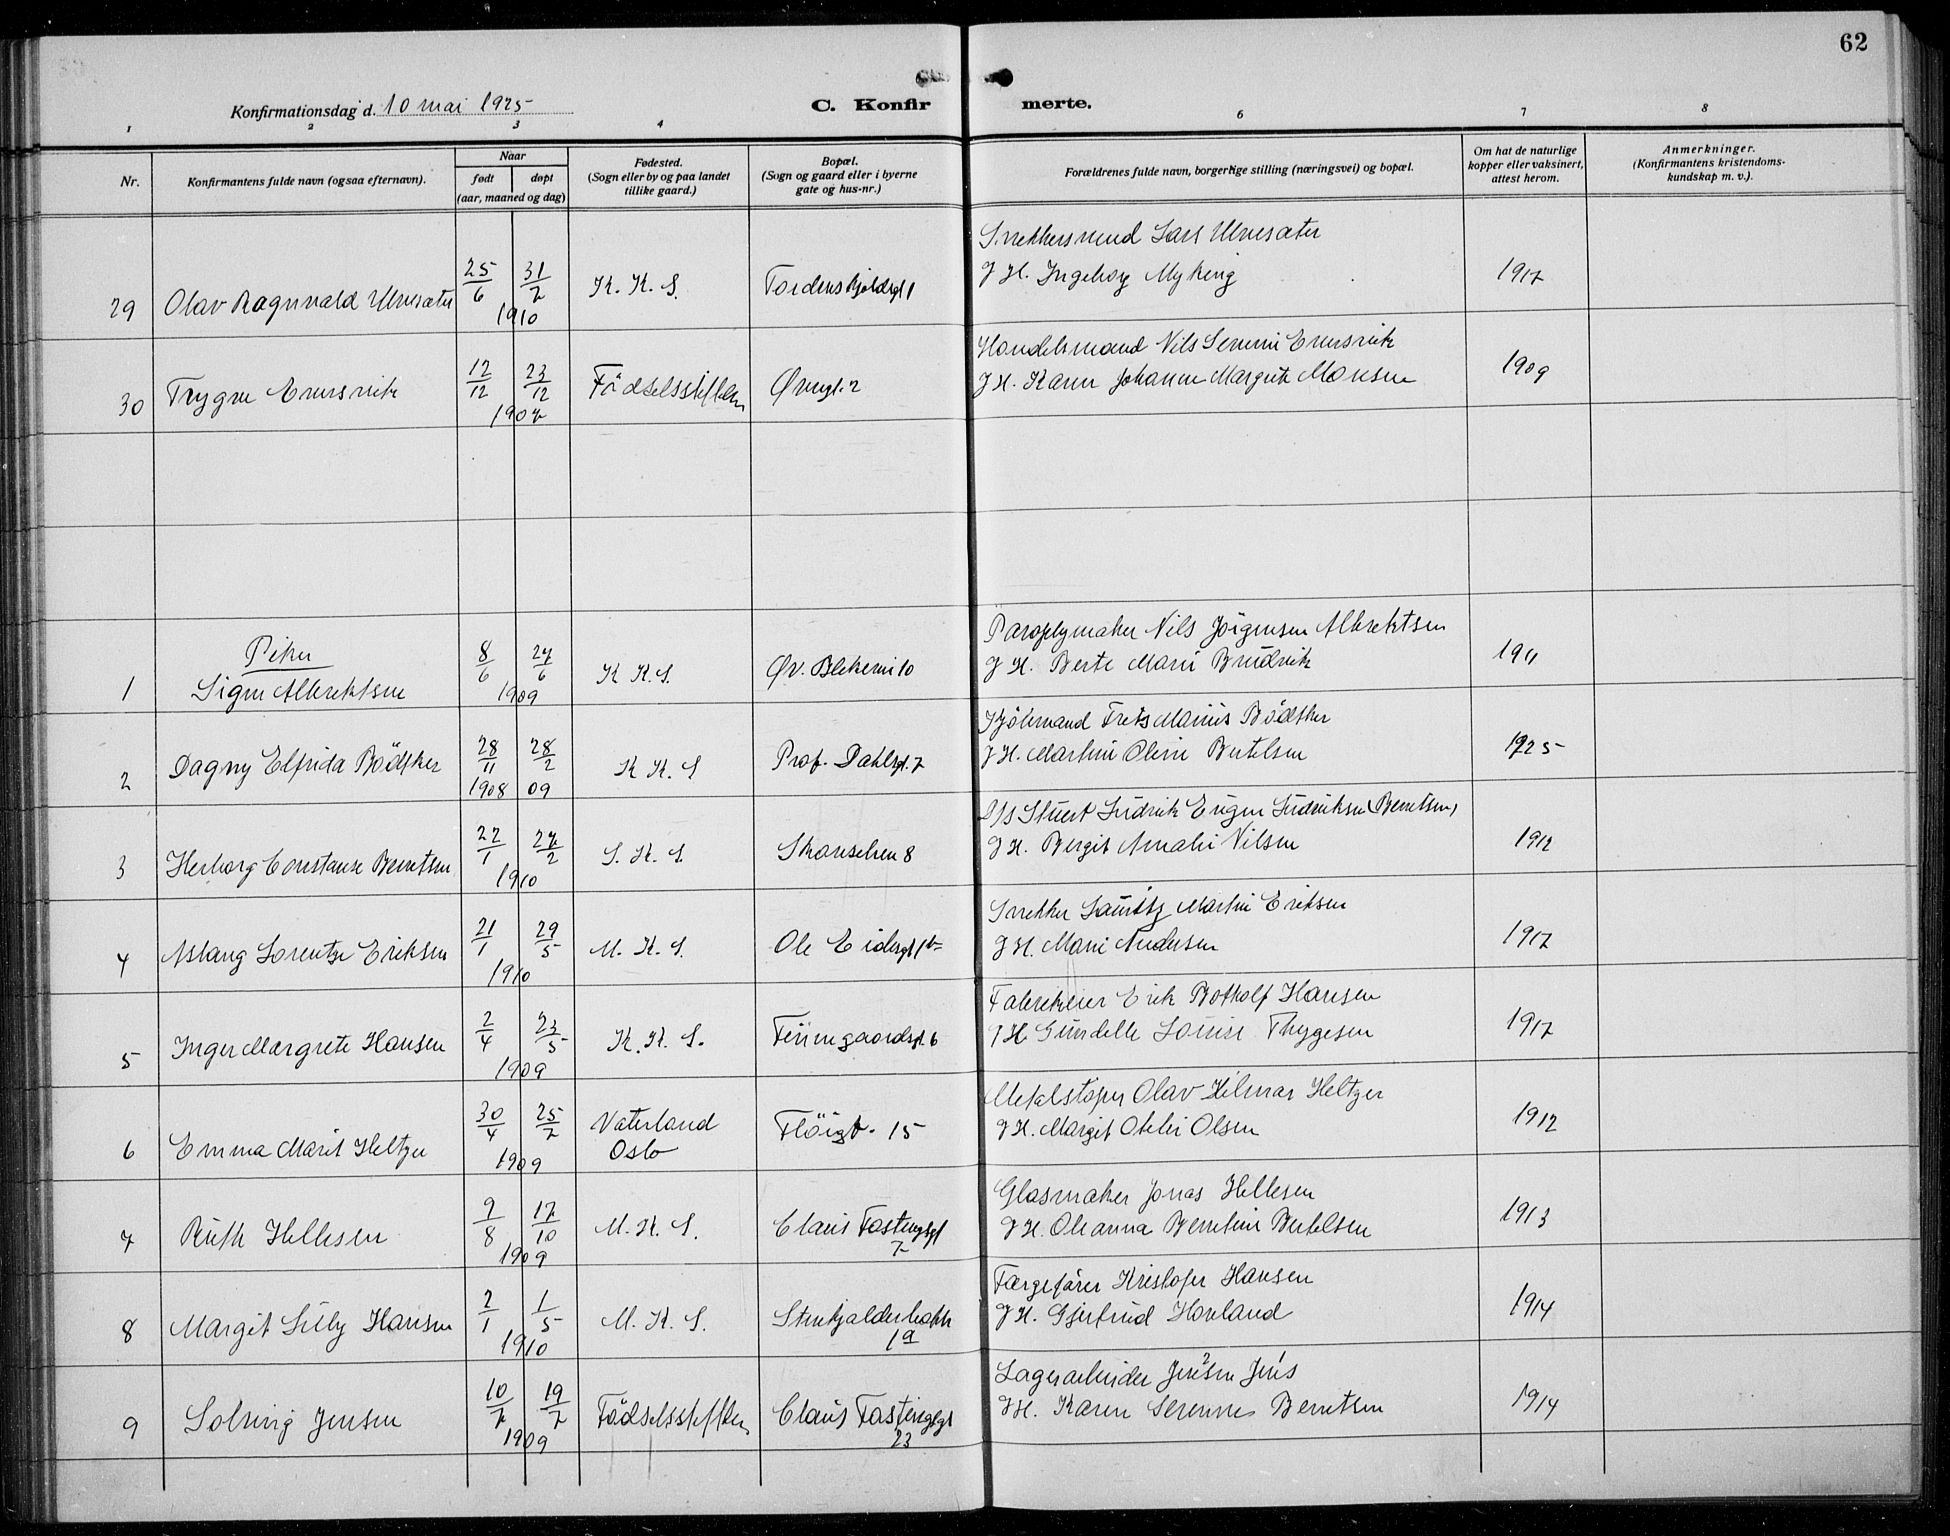 62
Konfirmationsdag d. 10 mai 1925
C. Konfir merte.
1 2 3 4 6 7 8
Nr.
Konfirmantens fulde navn (ogsaa efternavn).
Naar
født døpt
(aar, maaned og dag)
Fødested.
(Sogn eller by og paa landet
tillike gaard.)
Bopæl.
(Sogn og gaard eller i byerne
gate og hus-nr.)
Forældrenes fulde navn, borgerlige stilling (næringsvei) og bopæl.
Om hat de naturlige
kopper eller vaksinert,
attest herom.
Anmerkninger.
(Konfirmantens kristendoms-
kundskap m. v.).
Snekkersvend Lars Ulvesæter
29 Olav Ragnvald Ulvesæter 25/6 31/7 K. K. S. Tordenskjoldsgt 1 J H. Ingeborg Myking 1917
1910
Handelsmand Nils Severin
30 Trygve 12/12 23/12 Födselsstiftelsen Øvregt. 2 J H. Karen Johanne Margrete Monsen 1909
1907
Paraplymaker Nils Jörgensen Albrektsen
Piker
1 Signe Albrektsen 8/6 27/6 K K. S. Øv. Blekevei 10 J H. Berte Marie 1911
1909
Kjölmand Frits Marius Bödtker
2 Dagny Elfrida Bödtker 28/11 28/2 K K. S Prof. Dahlsgt. 7 J H. Martine Oline Bertelsen 1925
1908 09
D/S Stuert Fredrik Eugen Fredriksen (Berntsen)
3 Herborg Constanse Berntsen 22/1 27/2 S. K. S. Skanselien 8 J H. Bergit Amalie Nilsen 1912
1910
Snekker Lauritz Martin Eriksen
4 Aslaug Lorentze Eriksen 21/1 29/5 M. K. S. Ole Eidesgt 1b J H. Marie Andersen 1917
1910
Fabrikeier Erik Botholf Hansen
5 Inger Margrete Hansen 2/4 23/5 K. K. S. Finnegaardsgt. 6 J H Gundelle Louise Thygesen 1917
1909
Metalstöper Olav Hilmar Heltzer
6 Emma Marit Heltzer 30/4 25/7 Vaterland Flöigt. 15 J H. Margit Otelie Olsen 1912
Oslo
1909
Glasmaker Jonas Hellesen
7 Ruth Hellesen 7/8 17/10 M. K. S. Claus Fastingsgt J H. Oleanna Berntine Bertelsen 1913
7
1909
Færgefører Kristofer Hansen
8 Margit Lilly Hansen 2/1 1/5 M. K. S. Stenkjalderbakk J H. Gjertrud Hovland 1914
1a
1910
Lagerarbeider Jensen Jens
9 Solveig Jensen 10/7 19/7 Födselsstiftelsen Claus Fastingsgt J H. Karen Serenne Berntsen 1914
23
1909